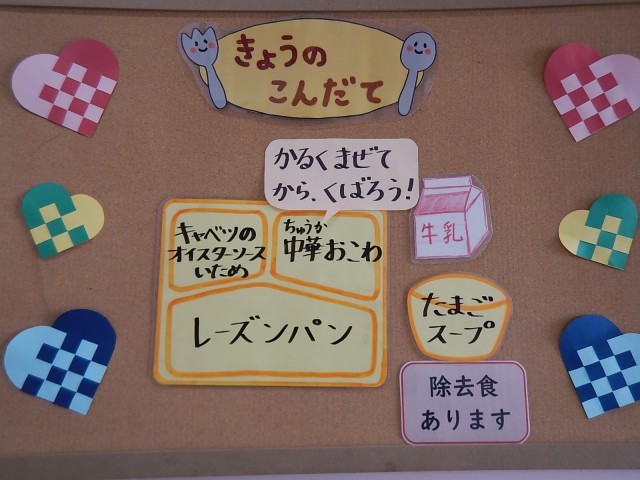 きょうの
こんだて
かるくまぜて
から、くばろう!
キャベツの
オイスターソース
いため
ちゅうか
中華おこわ
牛乳
レーズンパン
たまご
スープ
除去食
あります